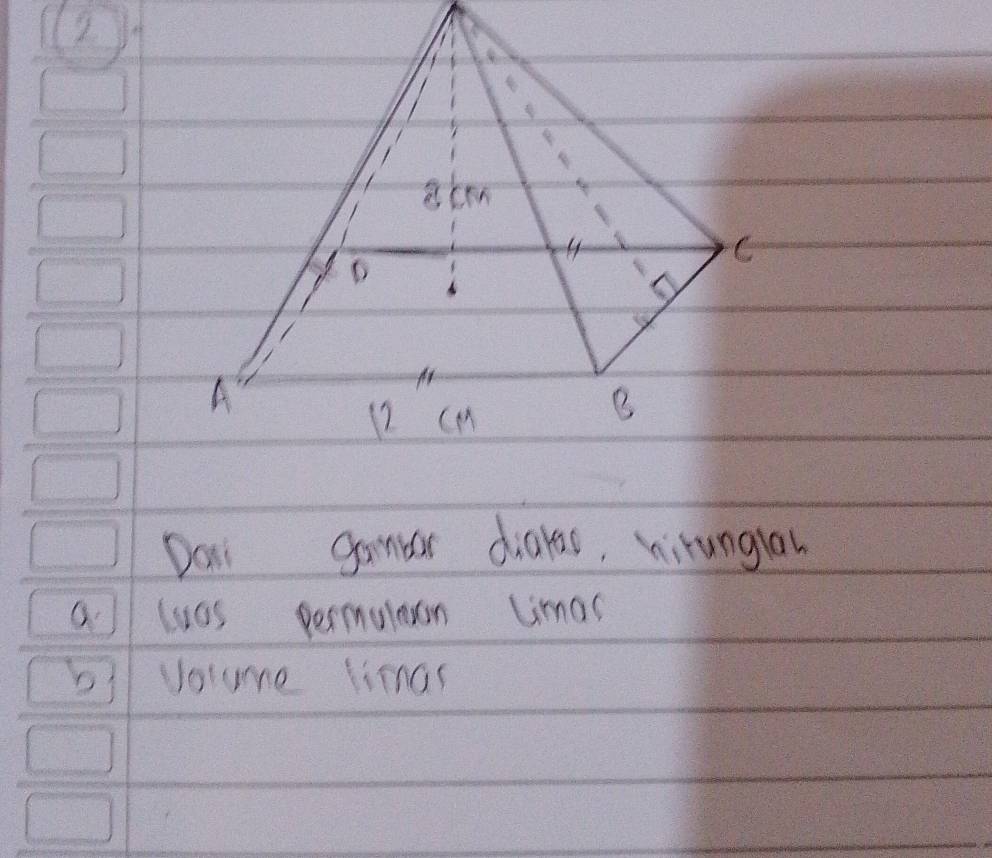 2.
8 cm
D
C
A
B
12 cm
Dari gambar diatas, hitunglah
a. luas permukaan limas
b. Volume limas